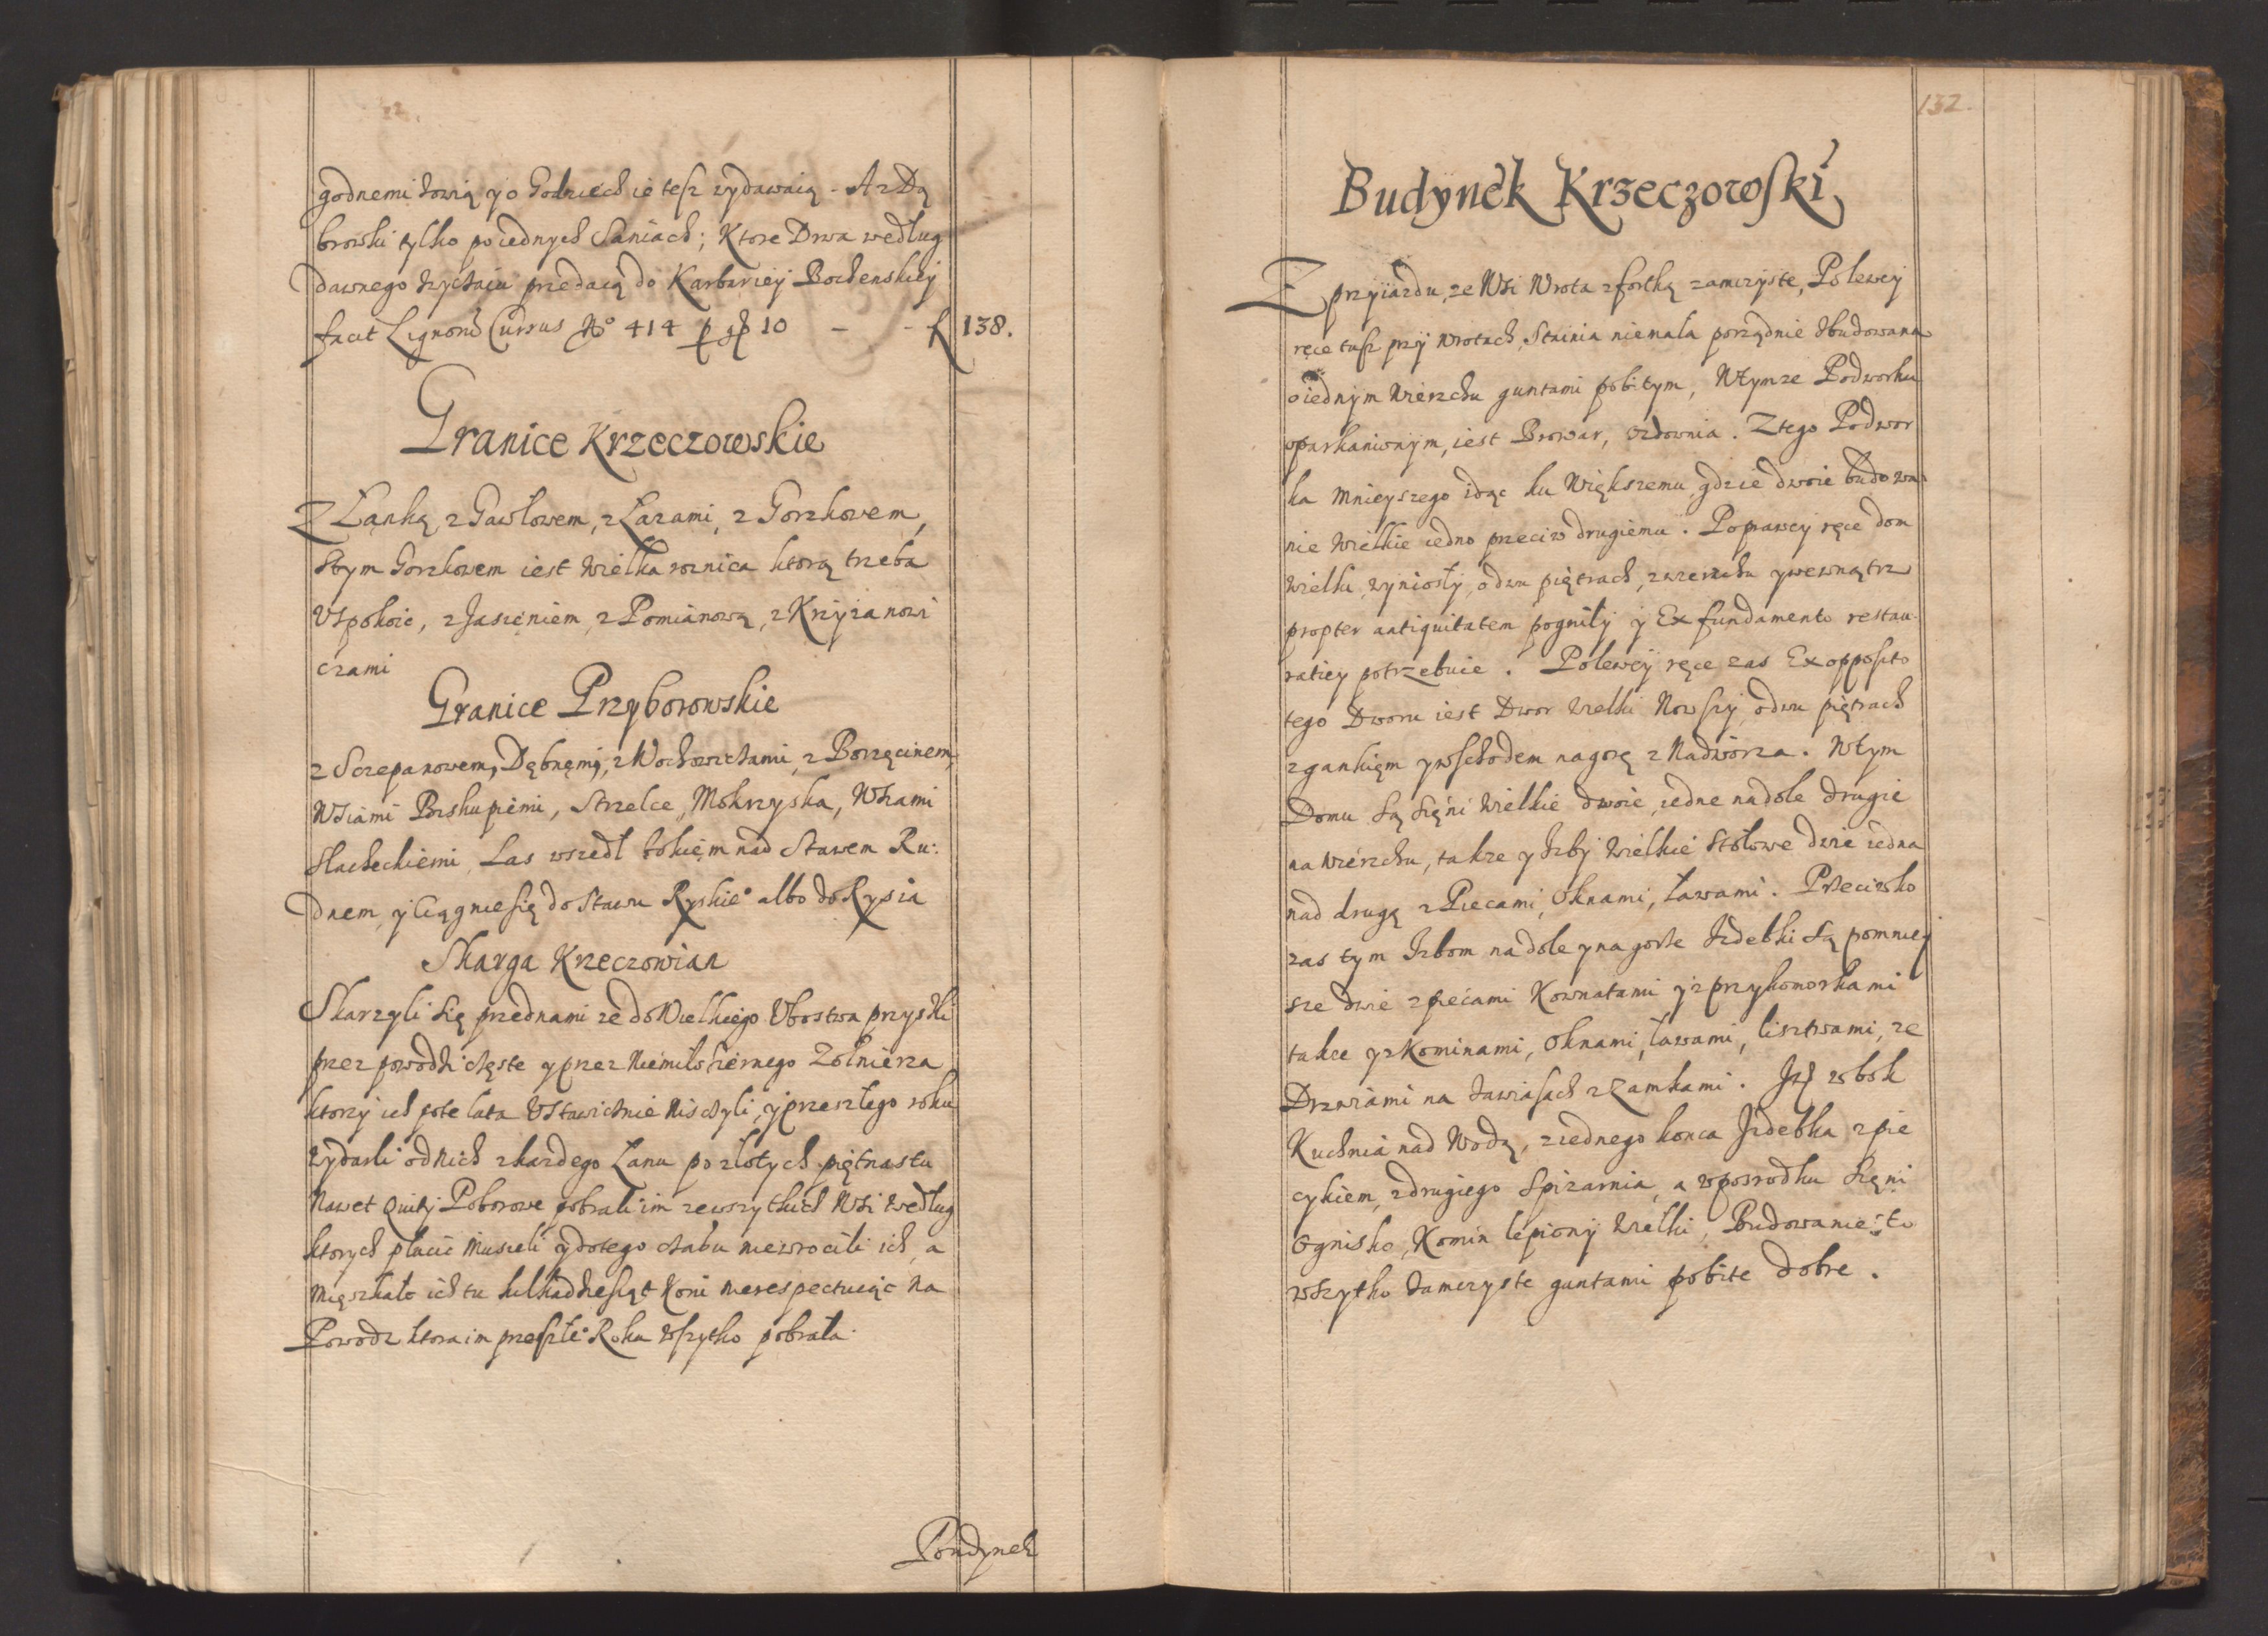 godnemi zowią y o Godziech ie tesz wydawaią - A z Dą
browki tylko po iednych Saniach; Ktore Drwa według
dawnego zwyczaiu przedaią do Karbariey Bochenskiey
facit Lignorũ Currus No 414 p gr 10 - - f 138.
Granice Krzeczowskie
Z Łąnką, z Gawłowem, z Łazami, z Gorzkowem,
Stym Gorzkowem iest wielka roznica ktorą trzeba
Uspokoic, z Jasięniem, z Pomianową, z Krzyzanowi
czami
Granice Przyborowskie
z Sczepanowem, Dębnęmi, z Wochowiczami, z Borzęcinem,
Wsiami Biskupiemi, Strzelce, Mokrzyska, Wsiami
Slacheckiemi, Las wszedł bokięm nad Stawem Ru:
dnem, y Ciągnie się do Stawu Ryskieo albo do Rysia
Skarga Krzeczowian
Skarzyli się przed nami ze do Wielkiego Ubostwa przyszli
przez powodzi częste y przez Niemiłosiernego Zołnierza
ktorzy ich pote lata Ustawicznie Nisczyli, y przeszłego roku
wydarli od Nich z kazdego Łanu po złotych piętnastu
Nawet Quity Poborowe pobrali im ze wszytkich Wsi według
ktorych płacic Musieli y do tego czasu nie wrocili ich, a
Mięszkało ich tu kilkadziesiąt Koni nie respectuiąc na
Powodz ktora im przeszłeo Roku wszytko pobrała.
Boudynek
132.
Budynek Krzeczowski
Z przyiazdu, ze Wsi Wrota z fortką zamczyste, Po lewey
ręce tusz przy Wrotach, Stainia niemała porządnie zbudowana
o iednym Wierzchu guntami pobitym, W tymze Podworku
oparkanionym, iest Browar, Ozdownia. Z tego Podwor
ka Mnieyszego idąc ku Większemu, gdzie dwoie budowa
nie Wielkie iedno przeciw drugiemu. Po prawey ręce dom
wielki, wyniosły, o dwu piętrach, z wierzchu y wewnątrz
propter antiquitatem pogniły y Ex fundamento restau
ratiey potrzebuie. Po lewey ręce zas Ex opposito
tego Dworu iest Dwor wielki Nowszy, o dwu piętrach
z gankięm y wschodem na gorę z Nadworza. W tym
Domu Są Sięni Wielkie dwoie, iedne na dole drugie
na wierzchu, takze y Izby Wielkie Stołowe dwie iedna
nad drugą z Piecami, Oknami, Ławami. Przeciwko
zas tym Izbom na dole y na gorze Izdebki są pomniey
sze dwie z piecami Kownatami y z przykomorkami
takze y z Kominami, Oknami, Ławami, lisztwami, ze
Drzwiami na Zawiasach z Zamkami. Jest w bok
Kuchnia nad Wodą, z iednego konca Izdebka z pie
cykiem, z drugiego Spizarnia, a w posrodku Sięni
Ognisko, Komin lepiony Wielki, Budowanie to
wszytko Zamczyste guntami pobite dobre.